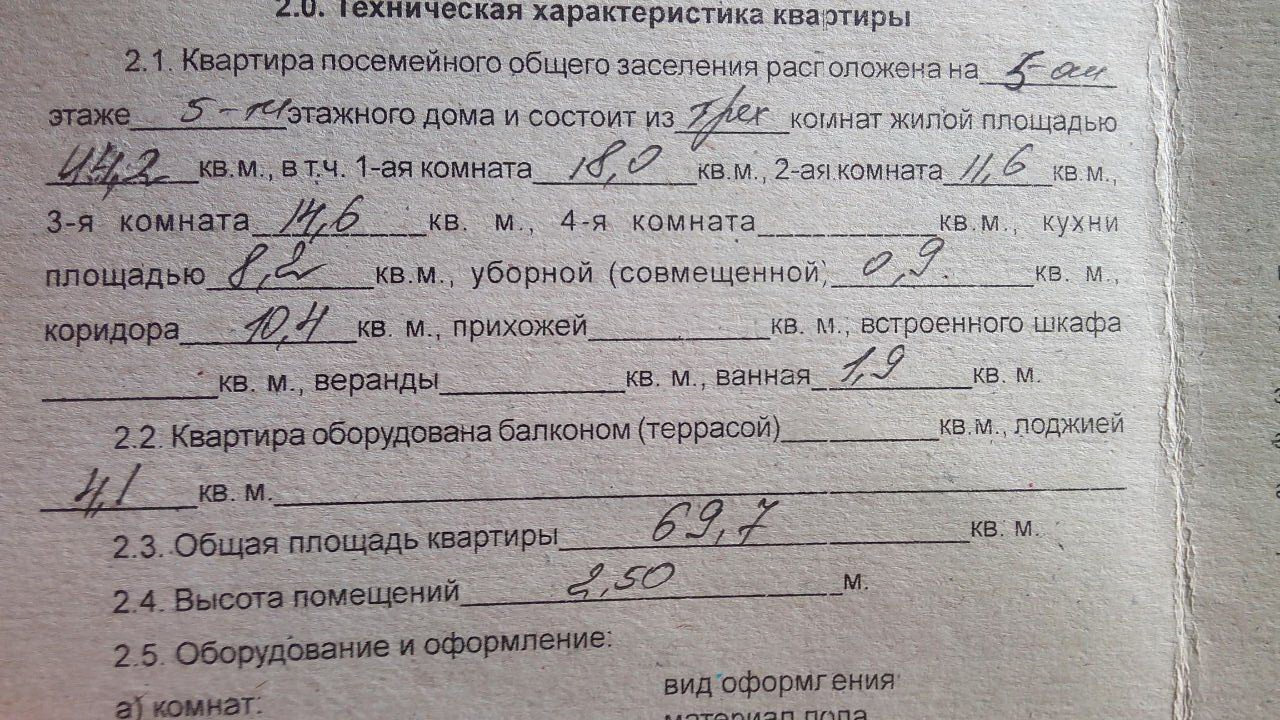 2.0. Техническая характеристика квартиры
2.1. Квартира посемейного общего заселения расположена на 5-ом
этаже 5-ти этажного дома и состоит из трех комнат жилой площадью
44,2 кв.м., в т.ч. 1-ая комната 18,0 кв.м., 2-ая комната 11,6 кв.м.,
3-я комната 14,6 кв. м., 4-я комната кв.м., кухни
площадью 8,2 кв.м., уборной (совмещенной) 0,9. кв. м.,
коридора 10,4 кв. м., прихожей кв. м., встроенного шкафа
кв. м., веранды кв. м., ванная 1,9 кв. м.
2.2. Квартира оборудована балконом (террасой) кв.м., лоджией
4,1 кв. м.
2.3. Общая площадь квартиры 69,7 кв. м.
2.4. Высота помещений 2,50 м.
2.5. Оборудование и оформление:
вид оформления
а) комнат:
материал пола